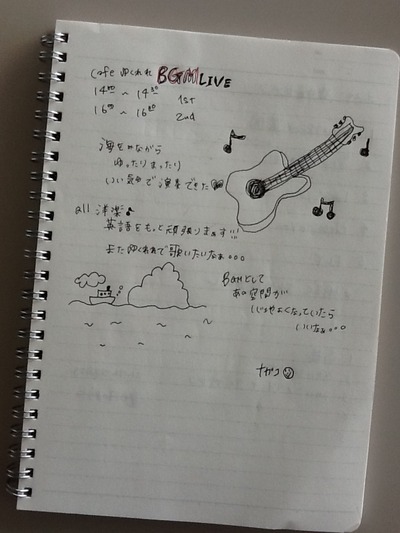 Cafe ゆくれれ BGM LIVE
14:00 ~ 14:30 1st
16:00 ~ 16:30 2nd
海を見ながら
ゆったりまったり
いい気分で演奏できた♥
all 洋楽♪
英語をもっと頑張ります!!!
またゆくれれで歌いたいなぁ。。。
BGMとして
あの空間が
心地よくなっていたら
いいなぁ。。。